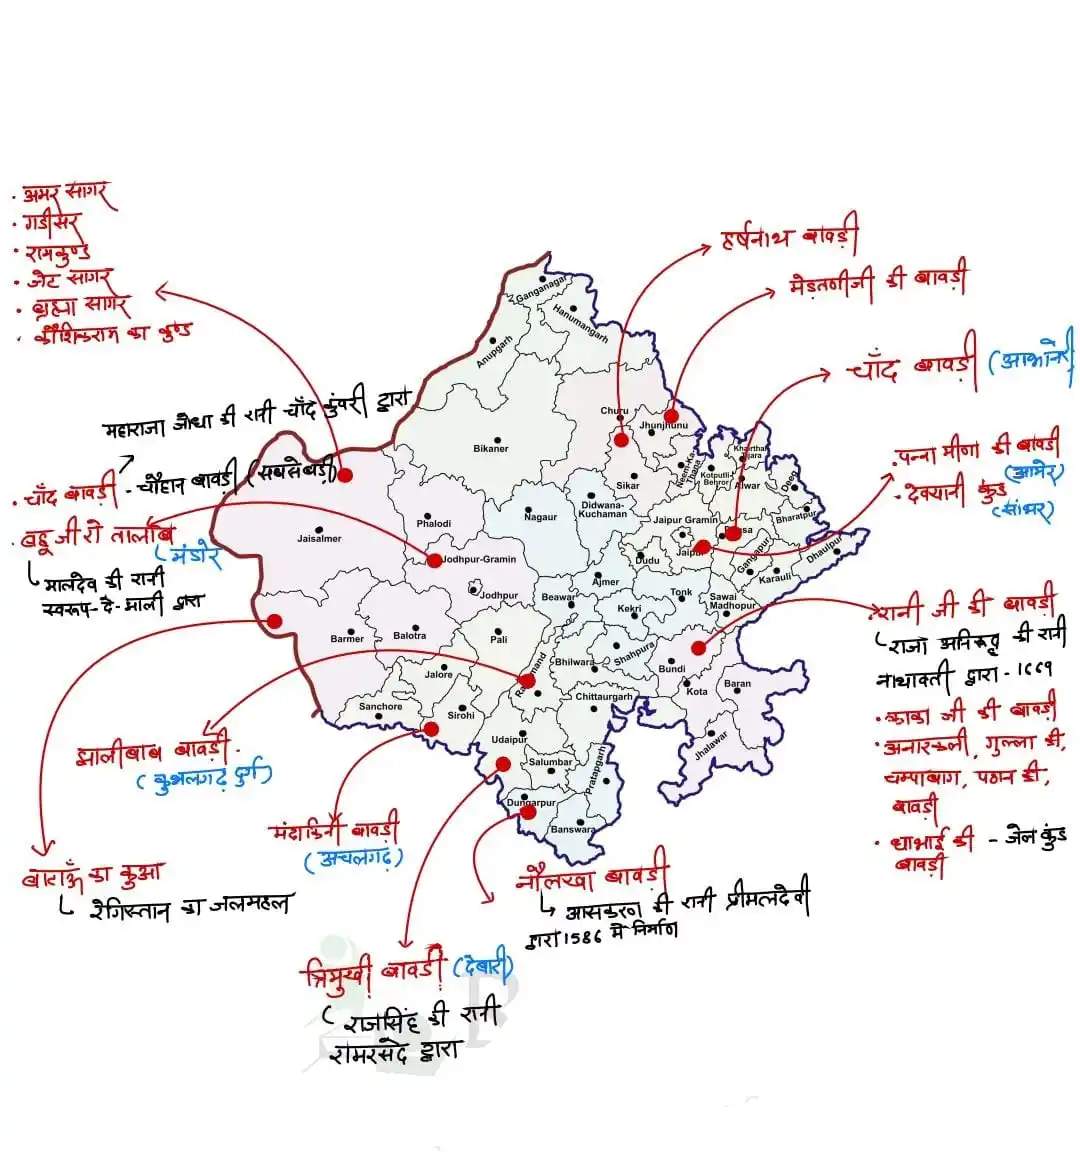 · अमर सागर
· गडीसर
· रामकुण्ड
· जेट सागर
· ब्रह्मा सागर
· कौशिकराम का कुण्ड
महाराजा जोधा की रानी चाँद कुंवरी द्वारा
· चाँद बावड़ी - चौहान बावड़ी (सबसे बड़ी)
· बहू जी रो तालाब
(मंडोर
मालदेव की रानी
स्वरूप-दे-माली द्वारा
हर्षनाथ बावड़ी
मेड़तणीजी की बावड़ी
चाँद बावड़ी (आभानेरी)
· पन्ना मीणा की बावड़ी
(आमेर)
- देवयानी कुंड
(सांभर)
रानी जी की बावड़ी
राजा अनिरुद्ध की रानी
नाथावती द्वारा - १६९९
· काका जी की बावड़ी
· अनारकली, गुल्ला की,
चम्पाबाग, पठान की,
बावड़ी
· धाभाई की - जेल कुंड
बावड़ी
झालीबाब बावड़ी.
(कुंभलगढ़ दुर्ग)
मंदाकिनी बावड़ी
(अचलगढ़)
बाटाडू का कुआ
रेगिस्तान का जलमहल
नौलखा बावड़ी
आसकरण की रानी प्रीमलदेवी
द्वारा 1586 में निर्माण
त्रिमुखी बावड़ी (देबारी)
राजसिंह की रानी
रामरसदे द्वारा
Ganganagar
Hanumangarh
Anupgarh
Churu
Jhunjhunu
Bikaner
Sikar
Neem-Ka-Thana
Kotputli-Behror
Khairthal-Tijara
Alwar
Deeg
Bharatpur
Jaisalmer
Phalodi
Nagaur
Didwana-Kuchaman
Jaipur Gramin
Jaipur
Dausa
Dudu
Gangapur
Dhaulpur
Karauli
Jodhpur-Gramin
Jodhpur
Ajmer
Beawar
Kekri
Tonk
Sawai Madhopur
Barmer
Balotra
Pali
Bhilwara
Shahpura
Bundi
Kota
Baran
Jalore
Rajsamand
Chittaurgarh
Sanchore
Sirohi
Udaipur
Salumbar
Pratapgarh
Jhalawar
Dungarpur
Banswara